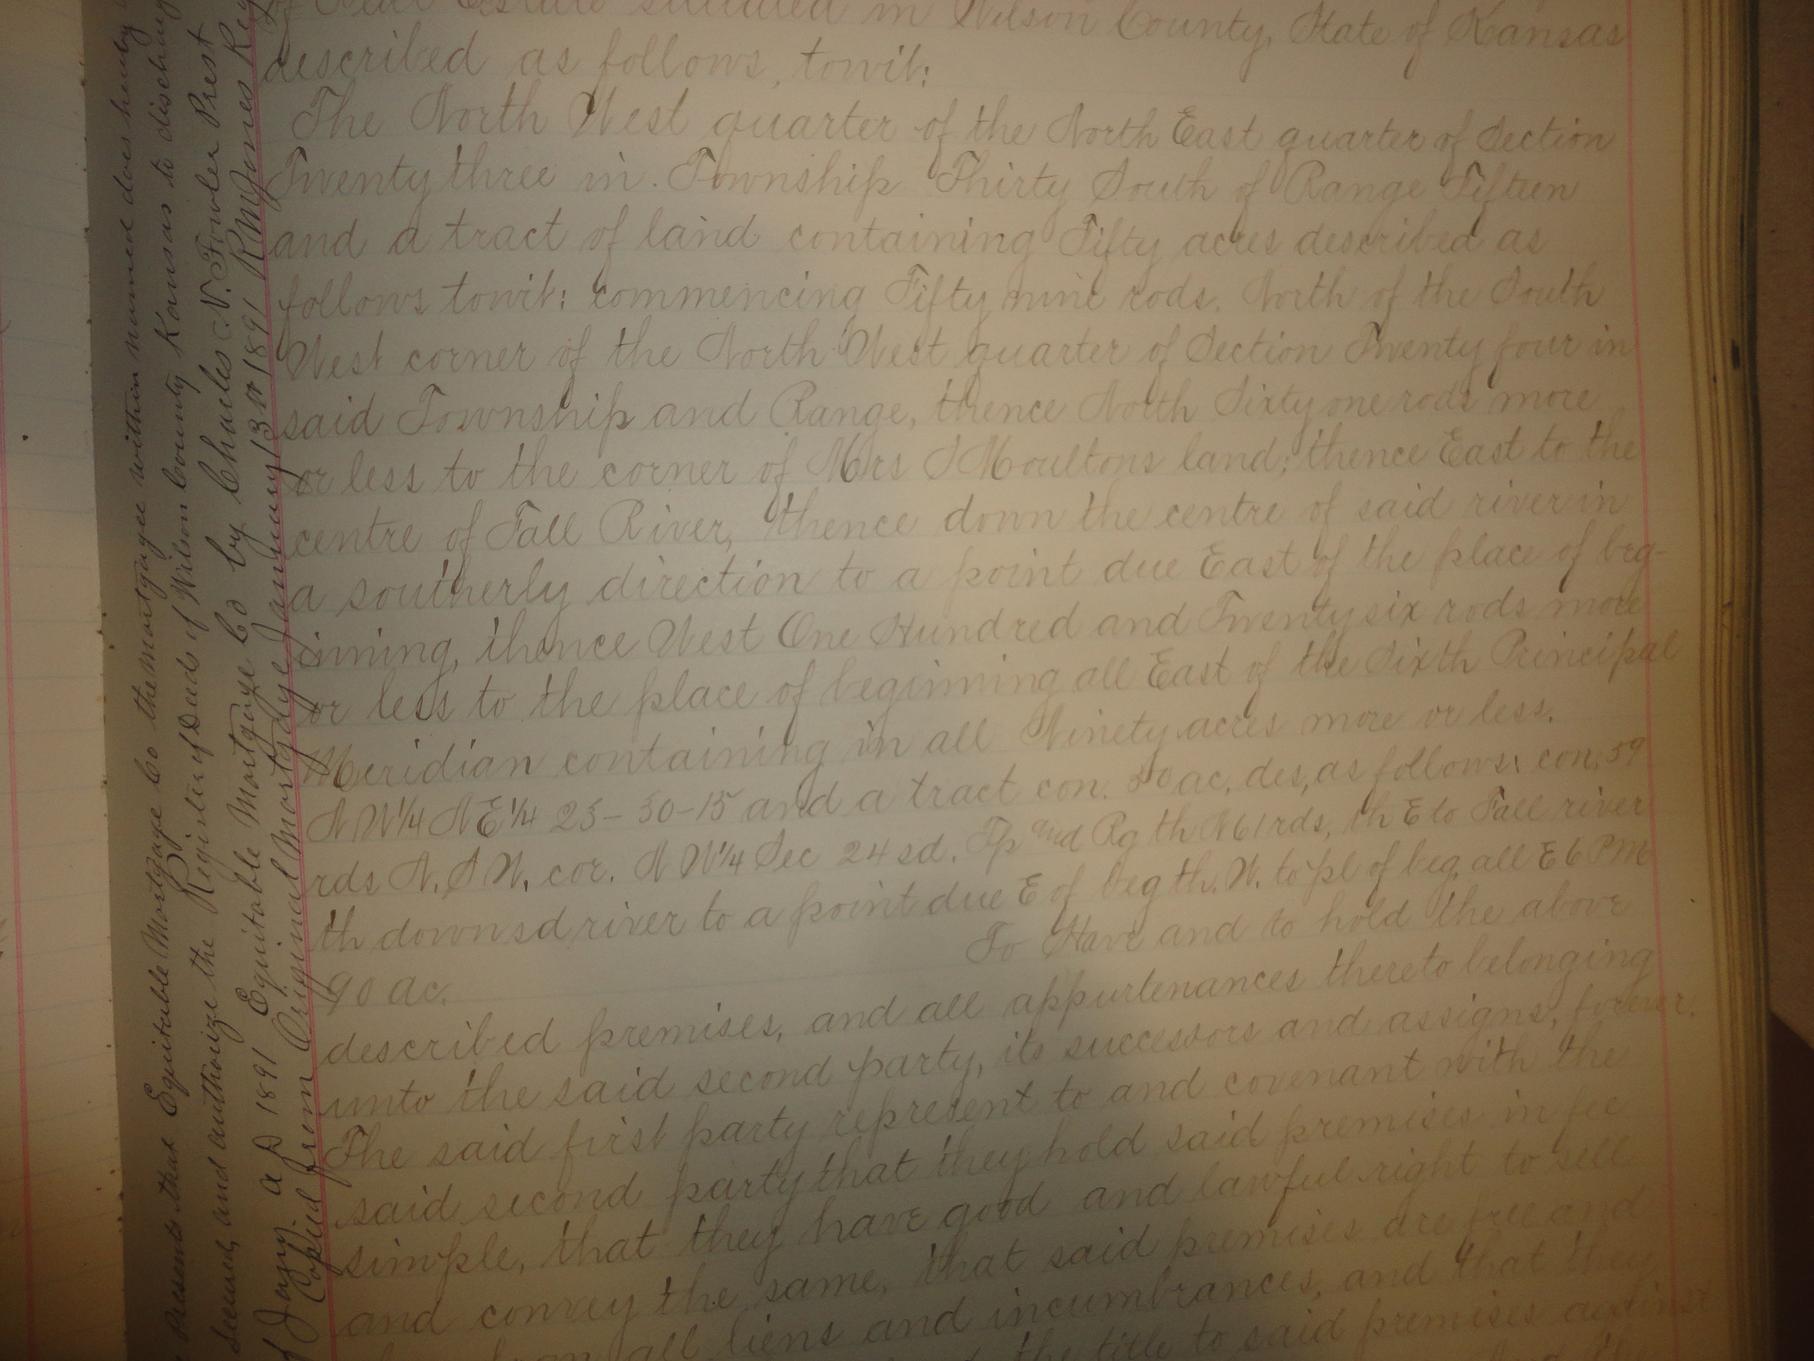 of Real Estate situated in Wilson County, State of Kansas
described as follows, towit:
The North West quarter of the North East quarter of Section
Twenty three in Township Thirty South of Range Fifteen
and a tract of land containing Fifty acres described as
follows towit: commencing Fifty nine rods. North of the South
West corner of the North West quarter of Section Twenty four in
said Township and Range, thence North Sixty one rods more
or less to the corner of Mrs S Moultons land; thence East to the
centre of Fall River, thence down the centre of said river in
a southerly direction to a point due East of the place of beg-
inning, thence West One Hundred and Twenty six rods more
or less to the place of beginning all East of the Sixth Principal
Meridian containing in all Ninety acres more or less.
N W 1/4 N E 1/4 23-30-15 and a tract con. 50 ac, des, as follows: con. 59
rds N. S W. cor. N W 1/4 Sec 24 sd. Tp and Rg th N 61 rds, th E to Fall river
th down sd river to a point due E of beg th. W. to pl of beg. all E 6 PM
90 ac. To Have and to hold the above
described premises, and all appurtenances thereto belonging
unto the said second party, its successors and assigns, forever.
The said first party represent to and covenant with the
said second party that they hold said premises in fee
simple, that they have good and lawful right to sell
and convey the same, that said premises are free and
all liens and incumbrances, and that they
the title to said premises against
Presents that Equitable Mortgage Co the mortgagee within named does hereby
and authorize the Register of Deeds of Wilson County Kansas to discharge
of Jany. A D 1891 Equitable Mortgage Co by Charles N. Fowler Prest
Copied from Original Mortgage January 13th 1891 R M Jones Reg